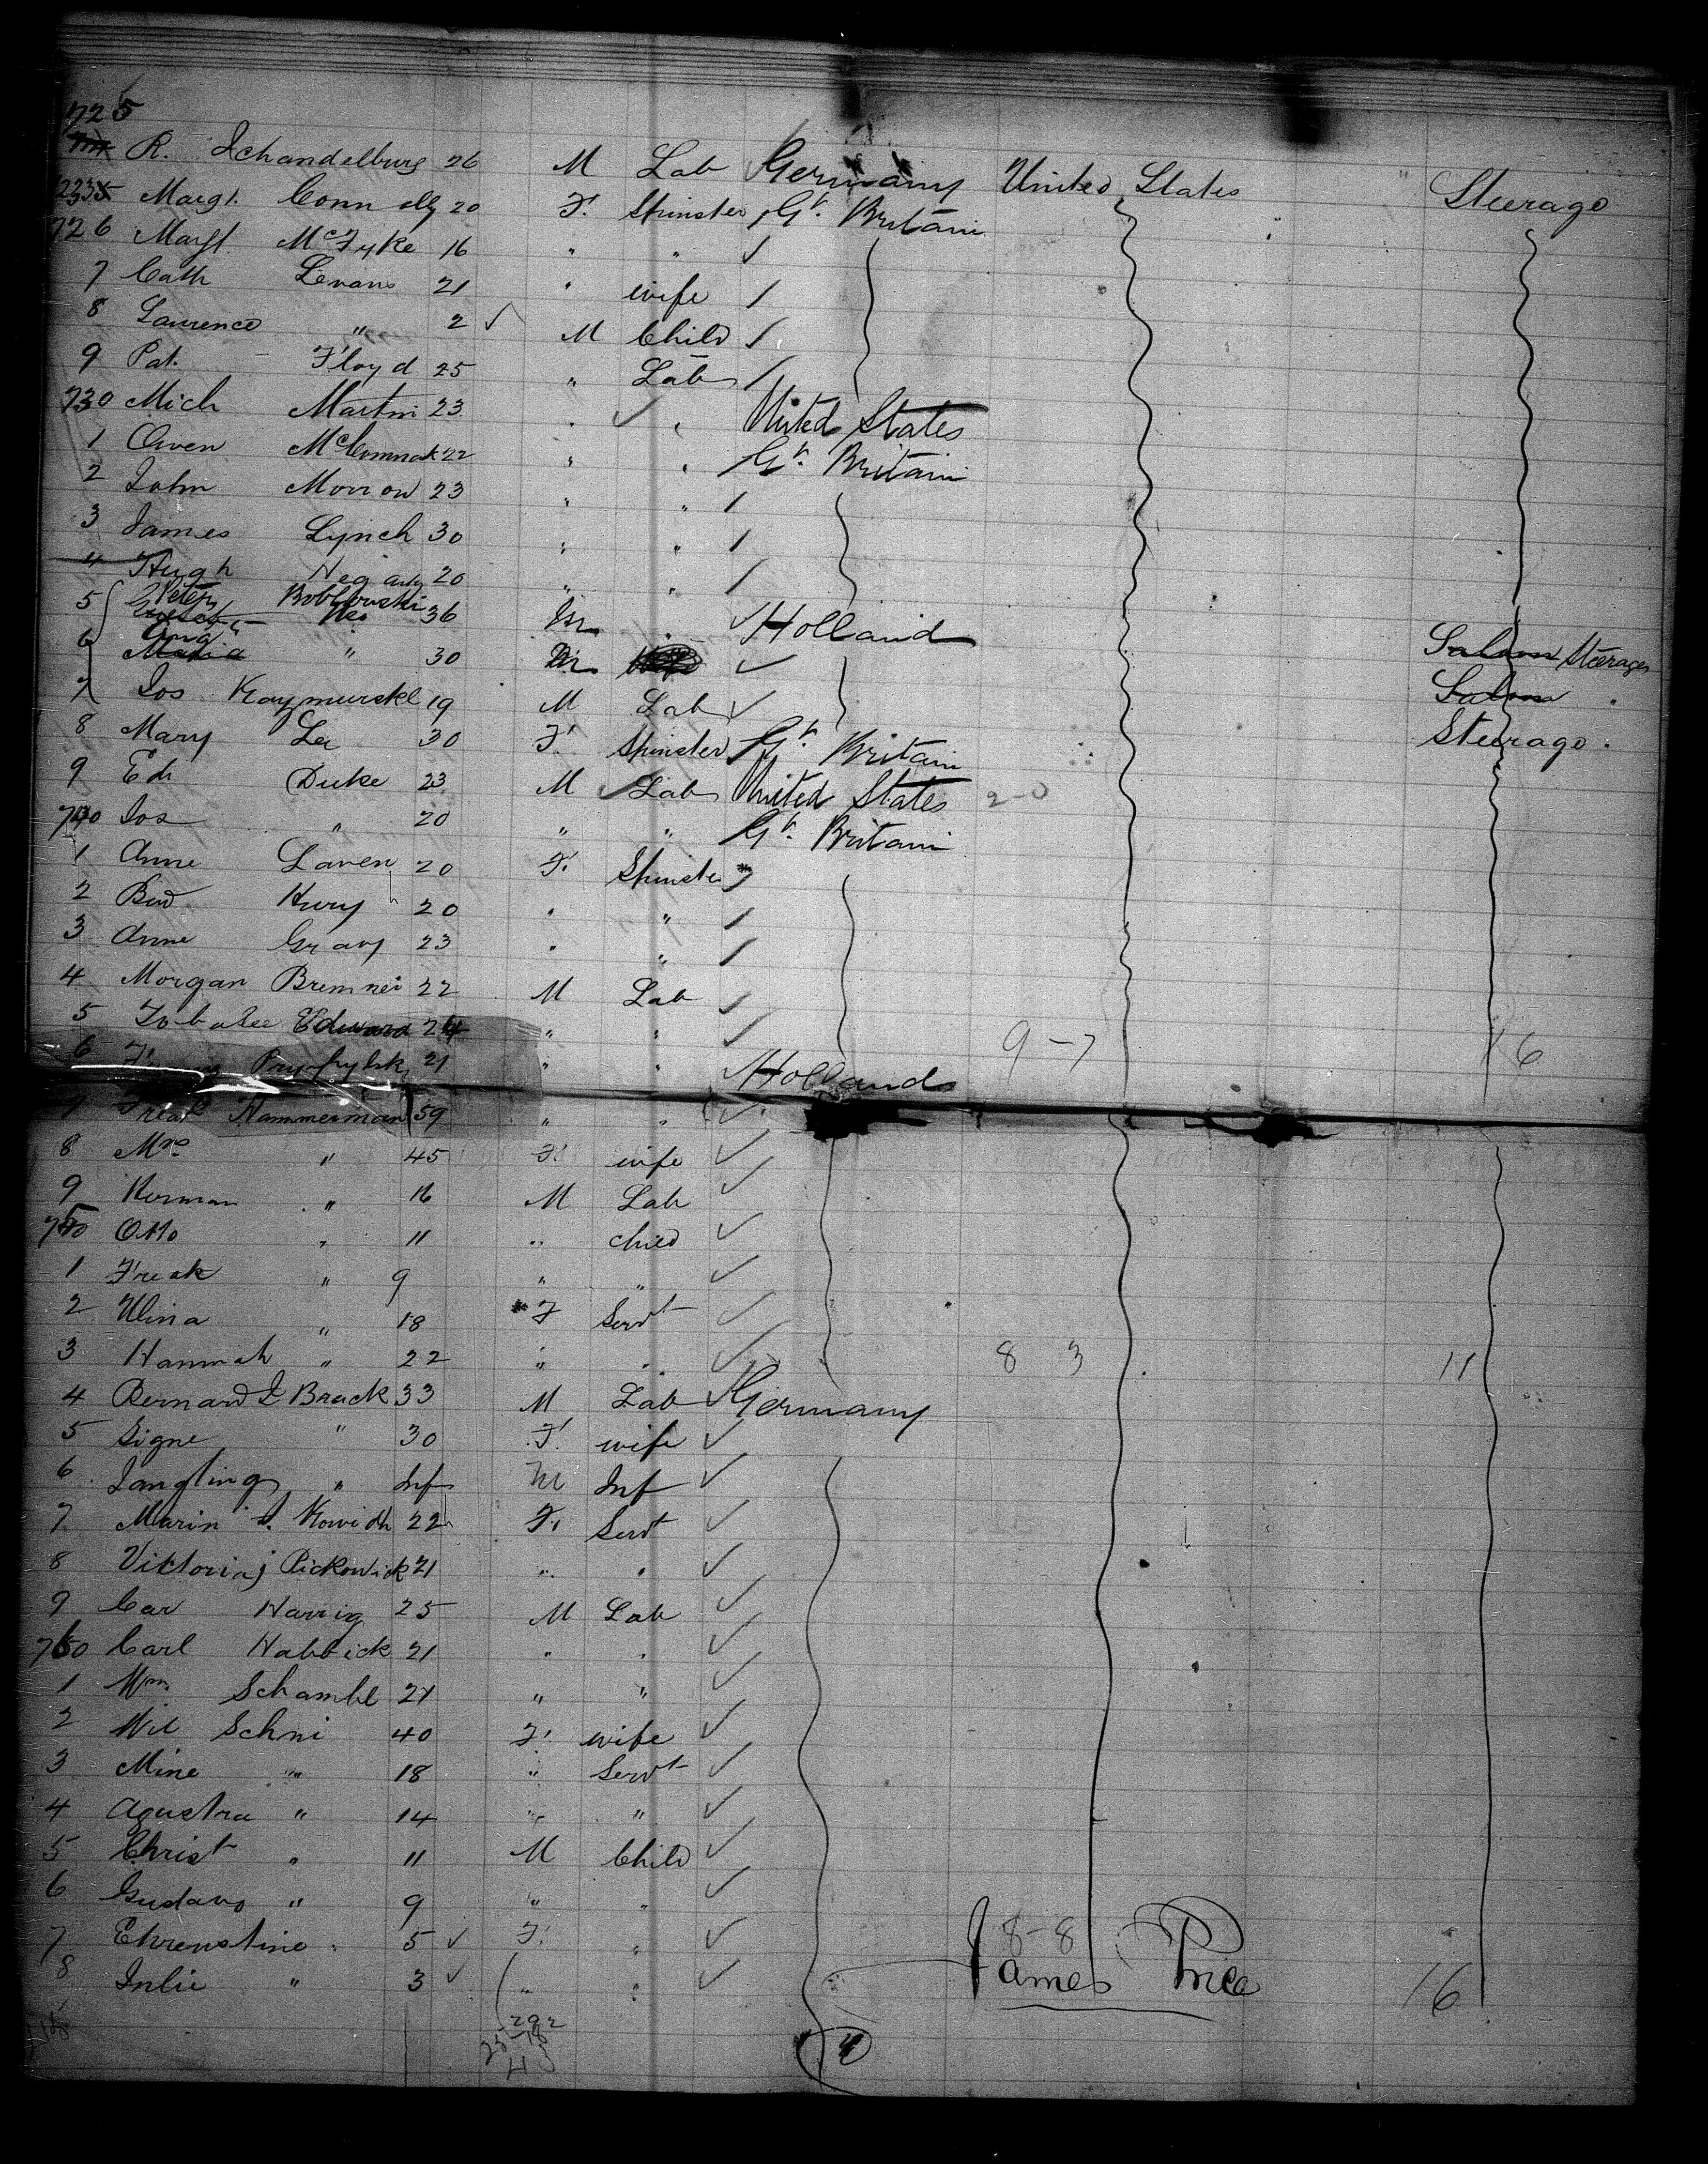 725
R. Schandelburg 26 M Lab Germany United States Steerage
Margt. Connolly 20 F. Spinster Gt. Britain
726 Margt. McFyke 16 " " ✓
7 Cath Evans 21 " wife /
8 Laurence " 2 ✓ M Child /
9 Pat. Floyd 25 " Lab /
730 Mich Martin 23 " ✓ " United States
1 Owen McCormak 22 " " Gt. Britain
2 John Morrow 23 " " /
3 James Lynch 30 " " /
4 Hugh Hegarty 20 " " /
5 Peter 36 M " ✓ Holland Saloon Steerage
6 Maria " 30 ✓ Saloon "
7 Jos Kaymurskl 19 M Lab ✓ Steerage.
8 Mary Lee 30 F. Spinster Gt. Britain
9 Ed. Duke 23 M ✓ Lab United States 2-0
740 Jos " 20 " " Gt. Britain
1 Anne Laven 20 F. Spinster
2 Brid. Hury 20 " " /
3 Anne Gray 23 " " /
4 Morgan Bremner 22 M Lab /
5 Edward 24 " " / 9-7 16
6 21 " " ✓ Holland
7 Freak Hammerman 59 " " ✓
8 Mrs " 45 F. wife ✓
9 Herman " 16 M Lab ✓
750 Otto " 11 " child ✓
1 Freak " 9 " " ✓
2 Ulina " 18 F Servt ✓
3 Hannah " 22 " " ✓ 8 3 11
4 Bernard I Brack 33 M Lab ✓ Germany
5 Signe " 30 F. wife ✓
6 Jangling " Inf M Inf ✓
7 Marin I. Kowidh 22 F. Servt ✓
8 Viktoriaj Pickowick 21 " " ✓
9 Car Harrig 25 M Lab ✓
760 Carl Habbick 21 " " ✓
1 Wm. Schambl 21 " " ✓
2 Wil Schni 40 F. wife ✓
3 Mine " 18 " Servt ✓
4 Agustra " 14 " " ✓
5 Christ " 11 M Child ✓
6 Gudavo " 9 " " ✓
7 Ehrenstine " 5 ✓ F. " ✓ 8-8
8 Julie " 3 ✓ " " ✓ James Price 16
292